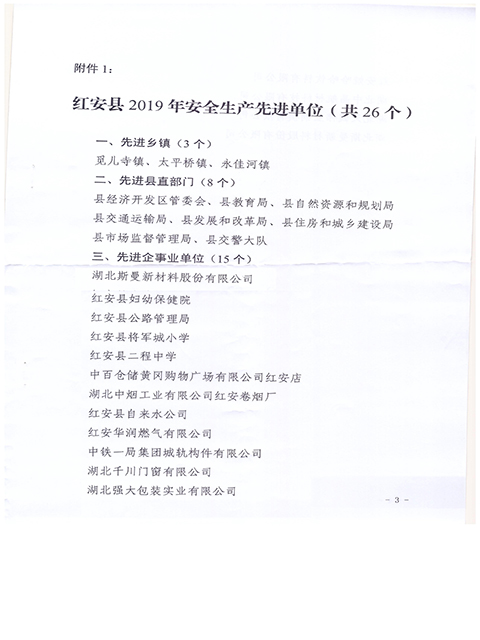 附件 1:
红安县 2019 年安全生产先进单位（共 26 个）
一、先进乡镇（3 个）
觅儿寺镇、太平桥镇、永佳河镇
二、先进县直部门（8 个）
县经济开发区管委会、县教育局、县自然资源和规划局
县交通运输局、县发展和改革局、县住房和城乡建设局
县市场监督管理局、县交警大队
三、先进企事业单位（15 个）
湖北斯曼新材料股份有限公司
红安县妇幼保健院
红安县公路管理局
红安县将军城小学
红安县二程中学
中百仓储黄冈购物广场有限公司红安店
湖北中烟工业有限公司红安卷烟厂
红安县自来水公司
红安华润燃气有限公司
中铁一局集团城轨构件有限公司
湖北千川门窗有限公司
湖北强大包装实业有限公司
- 3 -